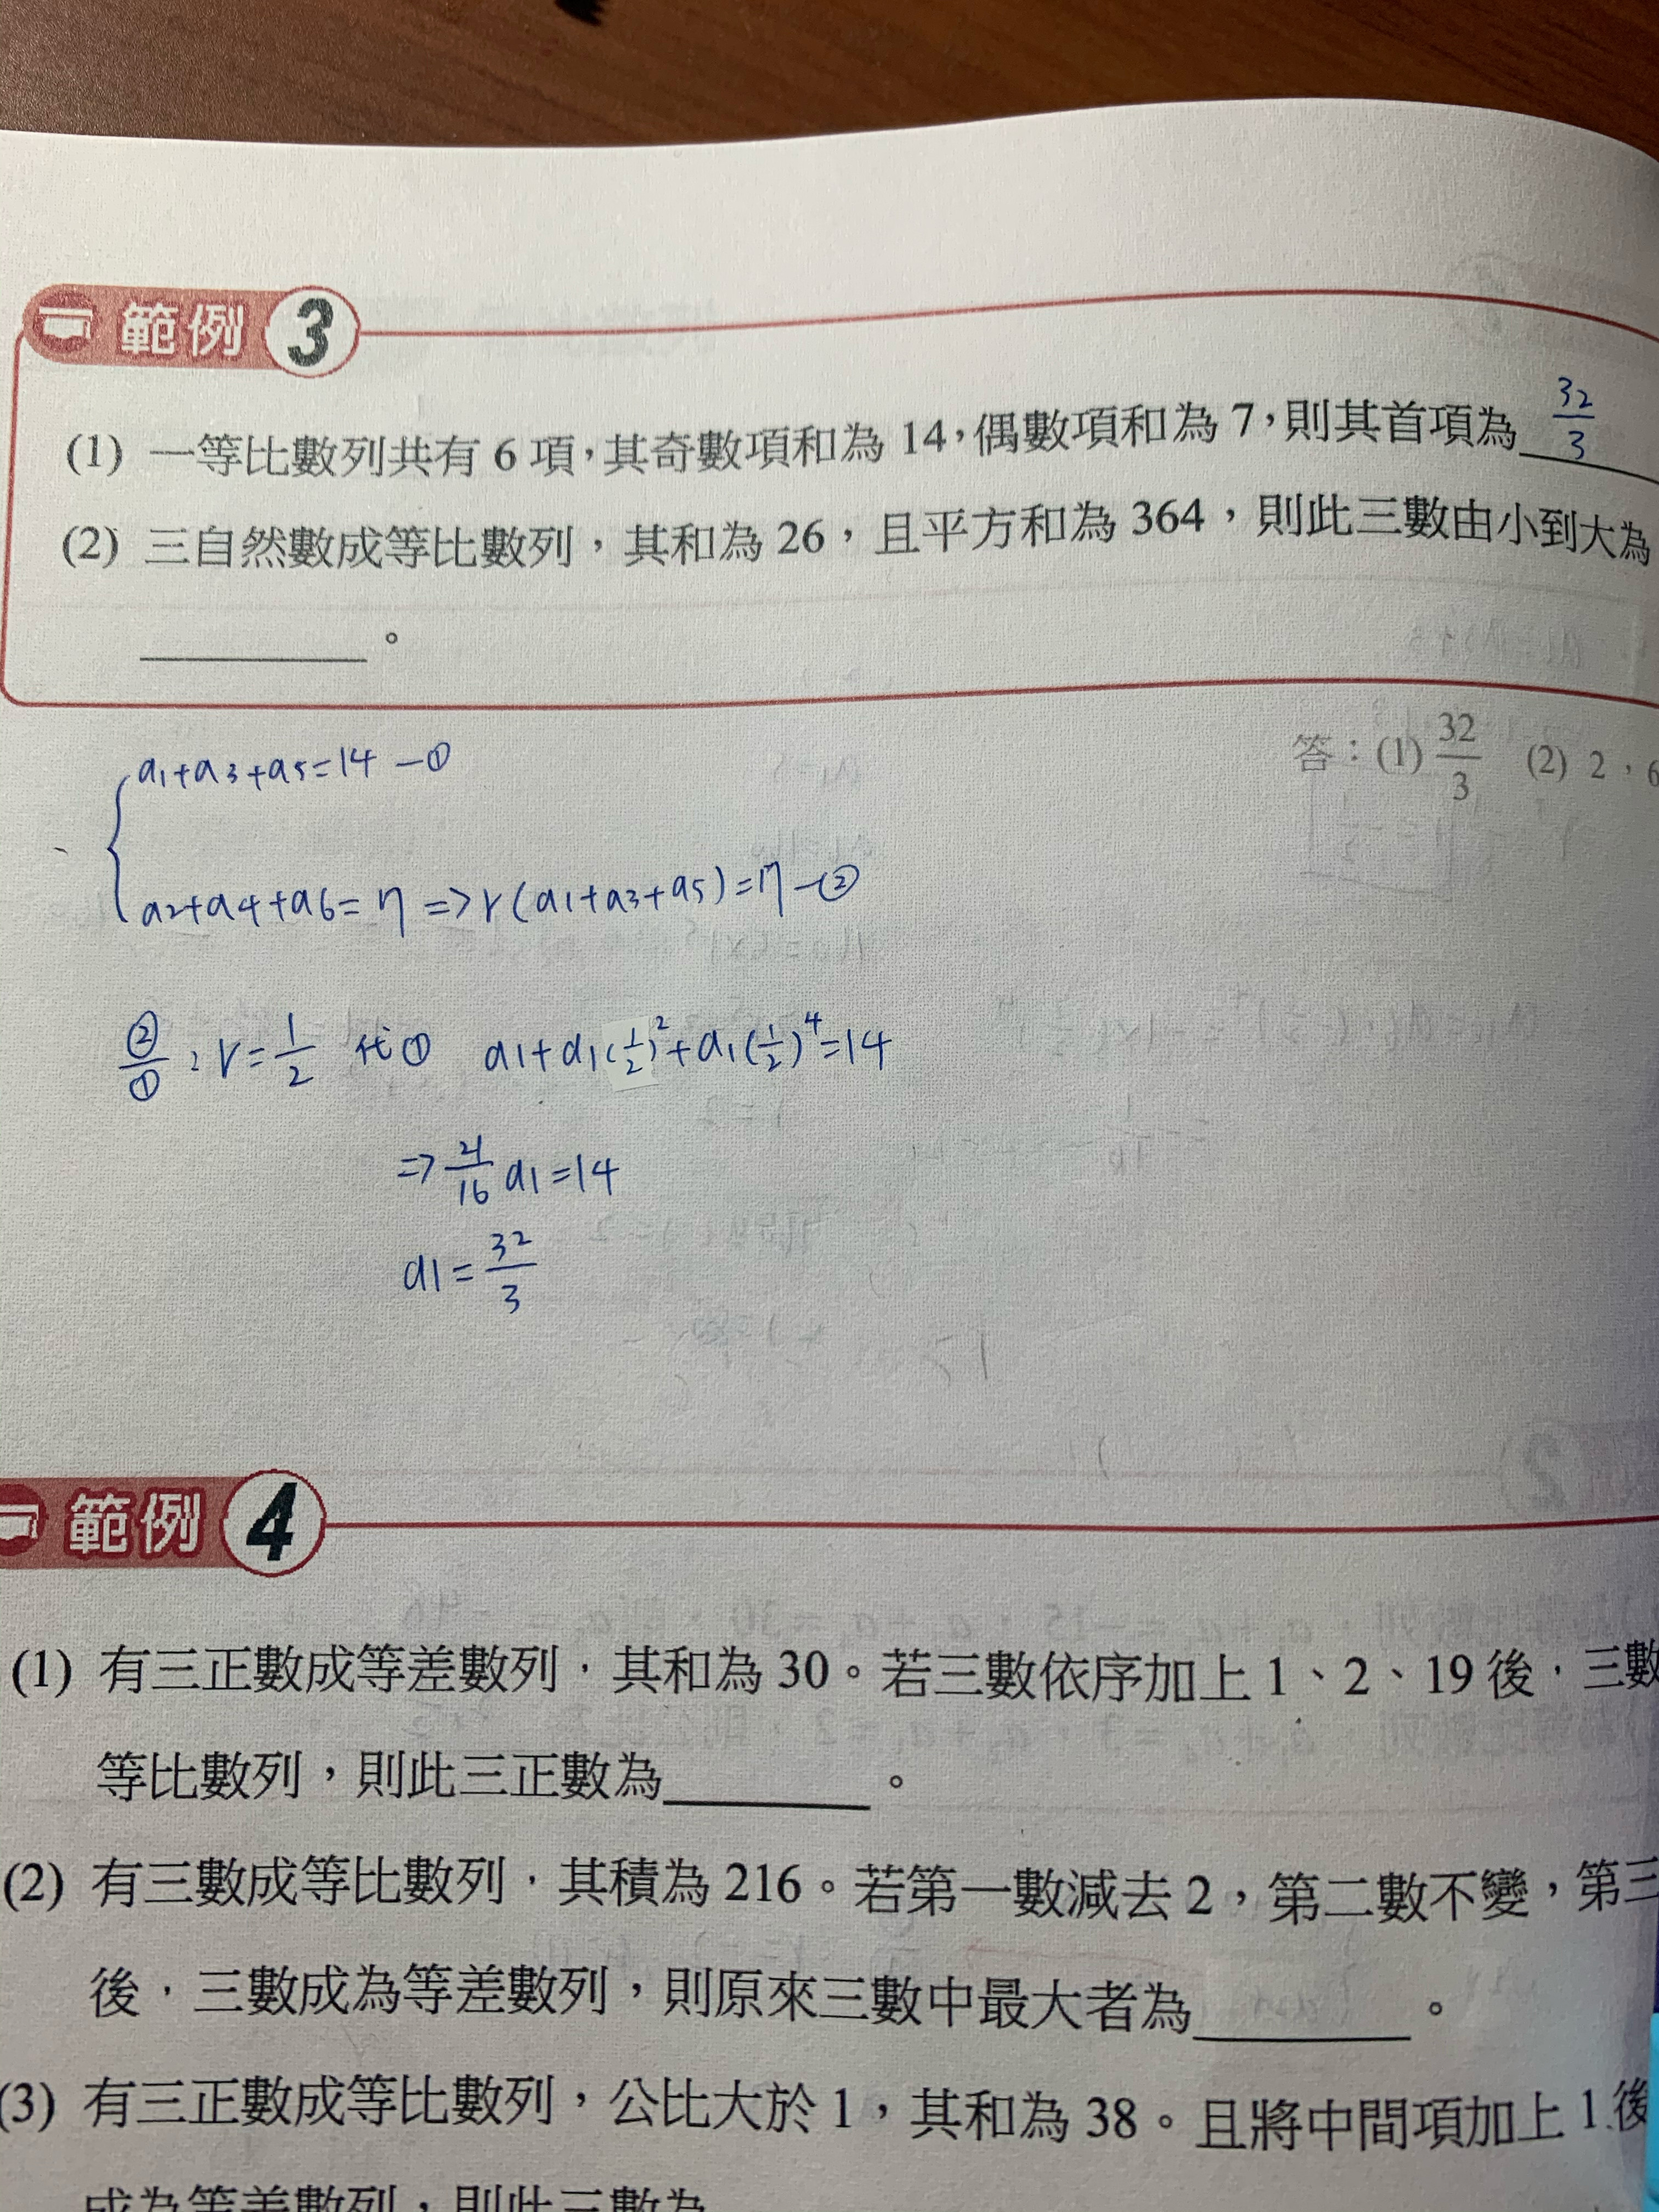 範例 3
(1) 一等比數列共有 6 項，其奇數項和為 14，偶數項和為 7，則其首項為 32/3
(2) 三自然數成等比數列，其和為 26，且平方和為 364，則此三數由小到大為
＿＿＿＿。
答：(1) 32/3 (2) 2，6
a1+a3+a5=14 —①
a2+a4+a6=7 => r(a1+a3+a5)=7 —②
②/① : r=1/2 代① a1+a1(1/2)²+a1(1/2)⁴=14
=> 21/16 a1=14
a1=32/3
範例 4
(1) 有三正數成等差數列，其和為 30。若三數依序加上 1、2、19 後，三數
等比數列，則此三正數為＿＿＿＿。
(2) 有三數成等比數列，其積為 216。若第一數減去 2，第二數不變，第三
後，三數成為等差數列，則原來三數中最大者為＿＿＿＿。
(3) 有三正數成等比數列，公比大於 1，其和為 38。且將中間項加上 1 後
成為等差數列，則此三數為